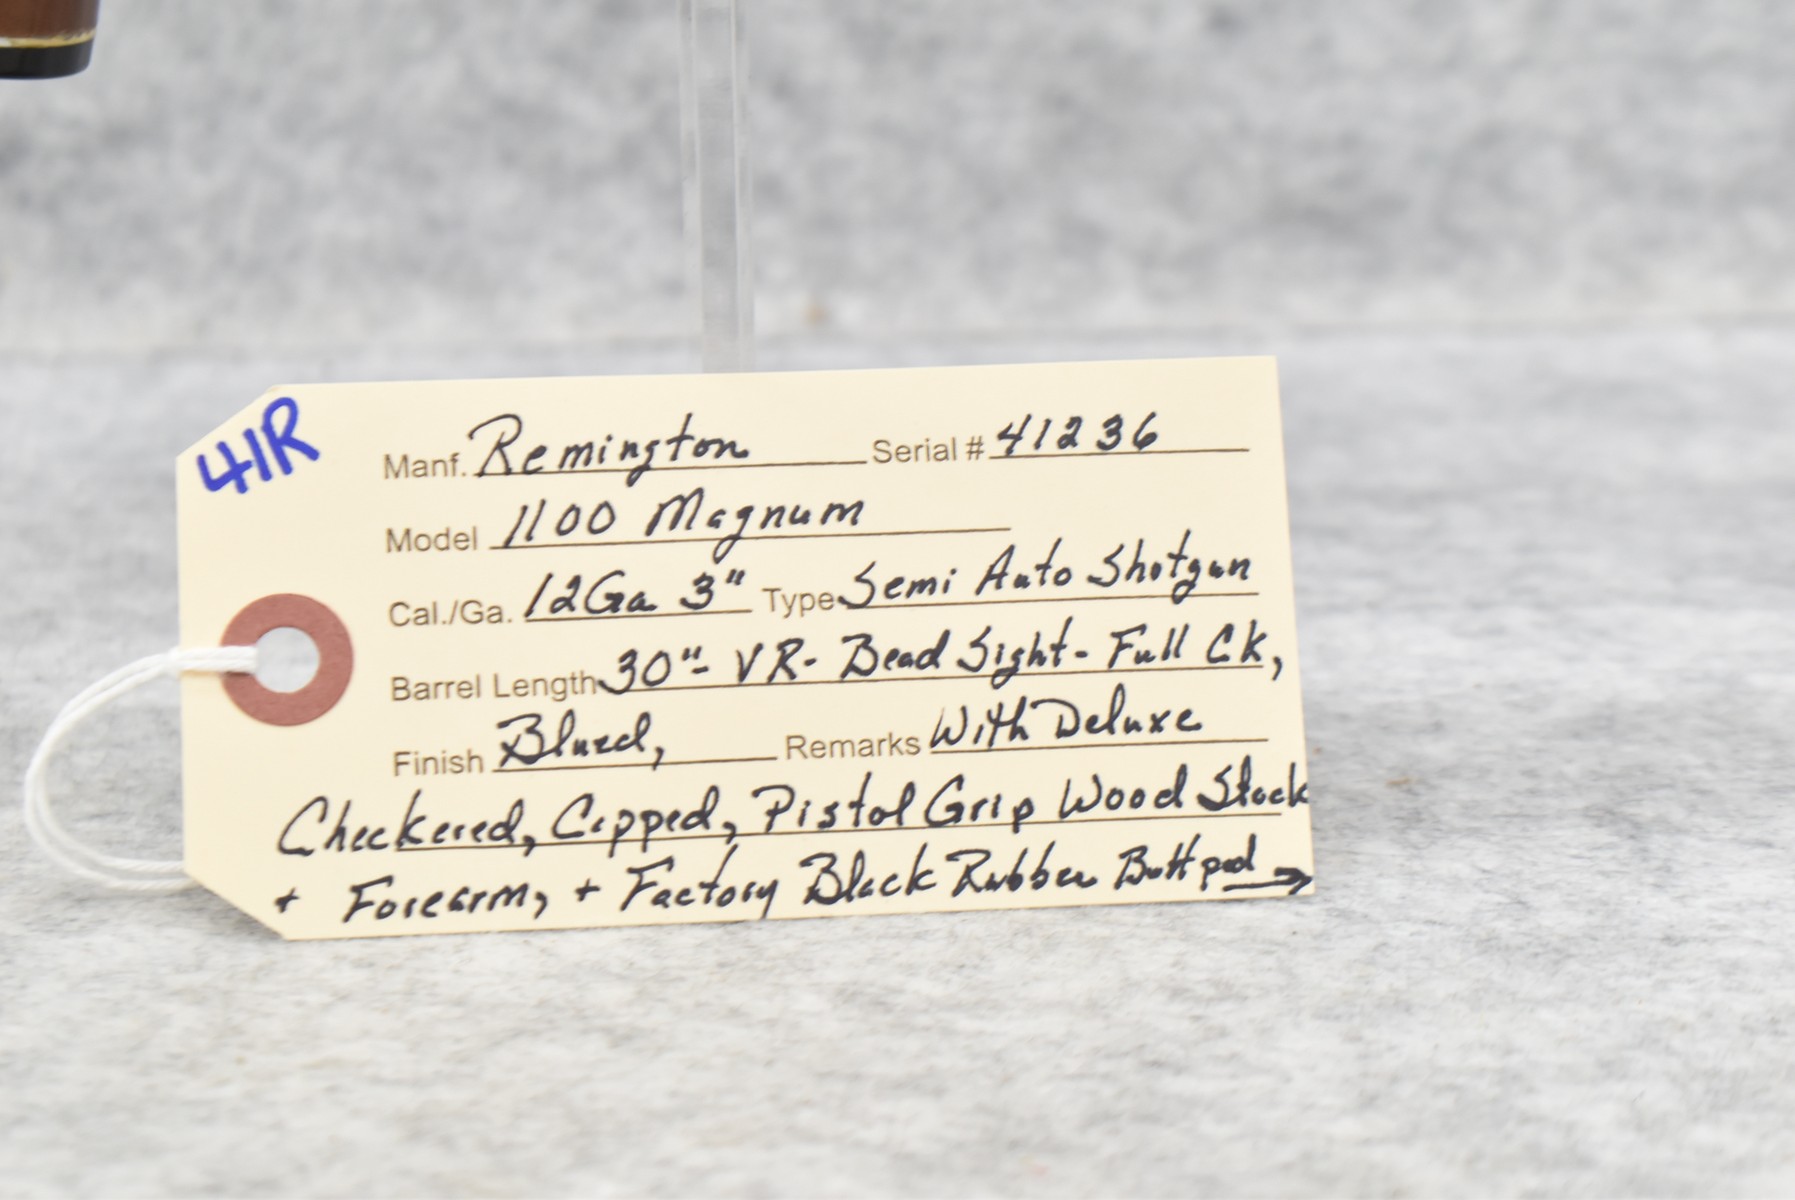 41R
Manf. Remington Serial # 41236
Model 1100 Magnum
Cal./Ga. 12Ga 3" Type Semi Auto Shotgun
Barrel Length 30"- VR- Bead Sight- Full Ck,
Finish Blued, Remarks With Deluxe
Checkered, Capped, Pistol Grip Wood Stock
+ Forearm, + Factory Black Rubber Buttpad →